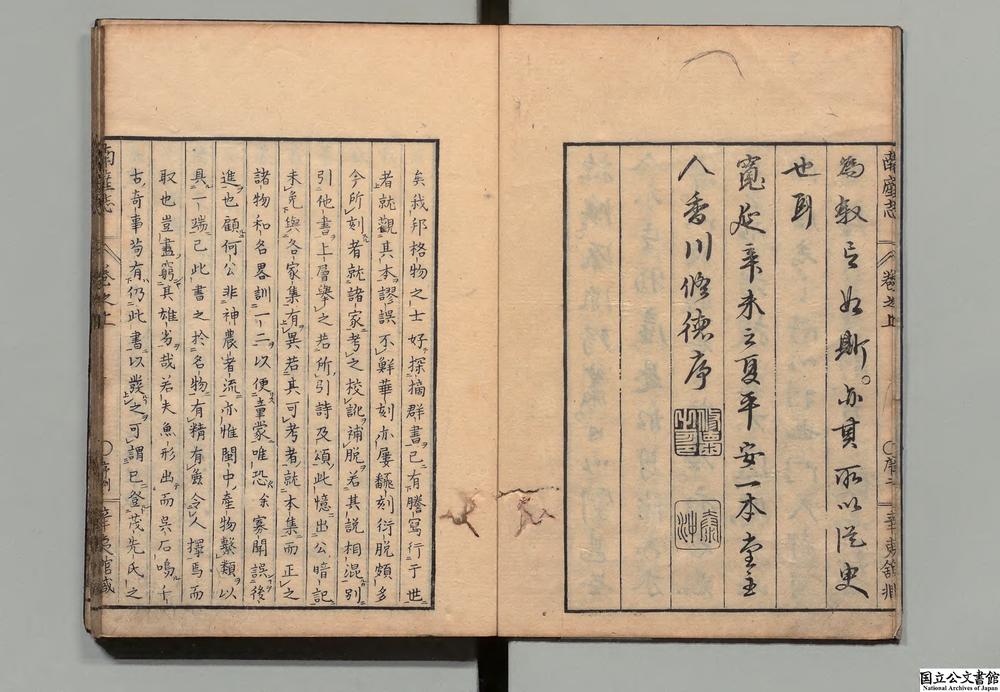 為叙之如斯。亦其所以從史
也耳
寬延辛未之夏平安一本堂主
人香川修德序
矣我邦格物之士好探摘群書已有謄寫行于世
者就觀其本謬誤不鮮華刻亦屢飜刻衍脱頗多
今所刻者就諸家考之校訛補脱若其説相混別
引他書上層擧之若所引詩及頌此憶出公暗記
未免與各家集有異若其可考者就本集而正之
諸物和名畧訓一二以便童蒙唯恐余寡聞誤後
進也顧何公非神農者流亦惟閩中產物繫類以
具一端已此書之於名物有精有㒺令人擇焉而
取也豈盡窮其雄劣哉若夫魚形出而吳石鳴
古奇事苟有仍此書以發之可謂已登茂先氏之
南産志
卷之上
国立公文書館
National Archives of Japan